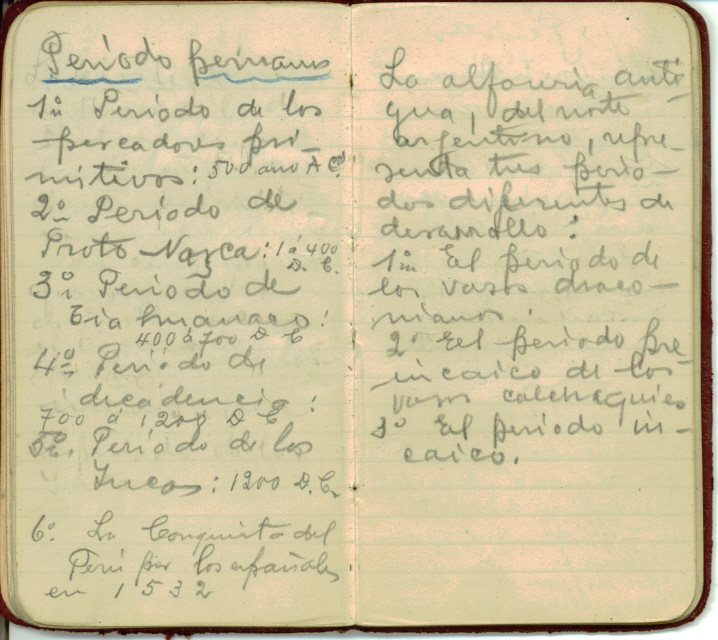 Periodo peruano
1º Periodo de los
pescadores pri-
mitivos: 500 ano A C.
2º Periodo de
Proto-Nazca: 1 á 400
D. C.
3º Periodo de
Tiahuanaco:
400 á 700 D C
4º Periodo de
decadencia:
700 á 1200 D C
5º Periodo de los
Incas: 1200 D. C.
6º La Conquista del
Perú por los españoles
en 1532
La alfareria anti-
gua, del norte
argentino, repre-
senta tres perio-
dos diferentes de
desarrollo:
1º El periodo de
los vasos draco-
nianos.
2º Eel periodo pre-
incaico de los
vasos calchaquies
3º El periodo in-
caico.